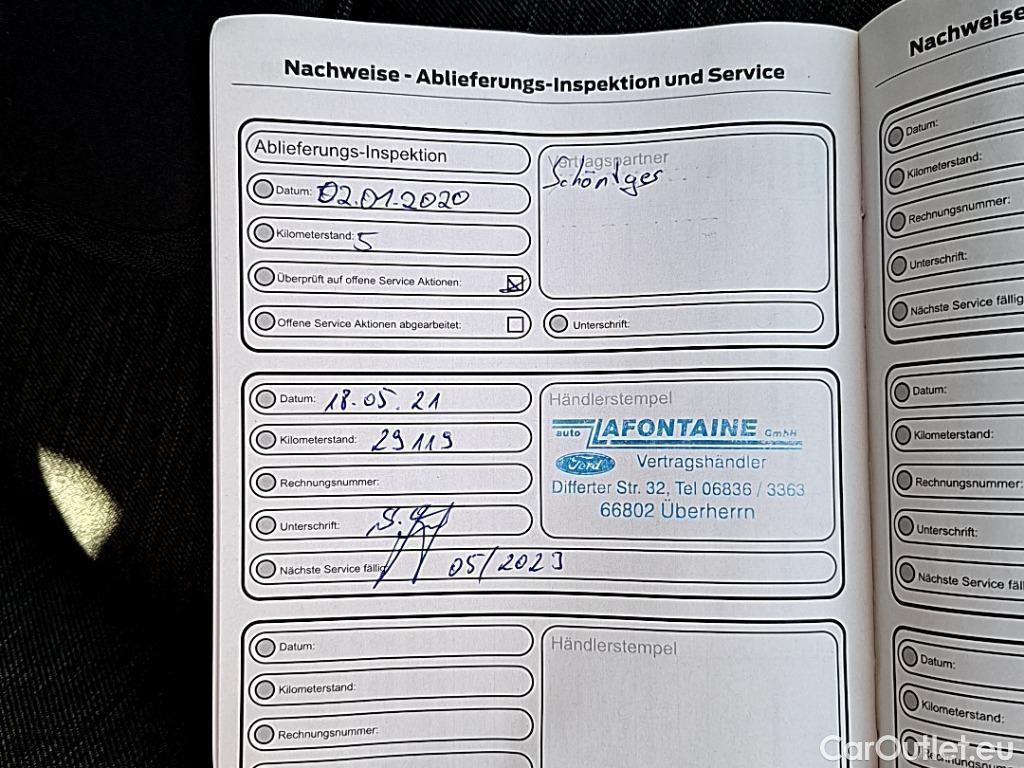 Nachweise - Ablieferungs-Inspektion und Service
Ablieferungs-Inspektion
Datum: 02.01.2020
Kilometerstand: 5
Überprüft auf offene Service Aktionen:
Offene Service Aktionen abgearbeitet:
Vertragspartner
Schöntger
Unterschrift:
Datum: 18.05.21
Kilometerstand: 29119
Rechnungsnummer:
Unterschrift:
Nächste Service fällig
05/2023
Händlerstempel
auto LAFONTAINE GmbH
Ford Vertragshändler
Differter Str. 32, Tel 06836 / 3363
66802 Überherrn
Datum:
Kilometerstand:
Rechnungsnummer:
Händlerstempel
Nachweise
Datum:
Kilometerstand:
Rechnungsnummer:
Unterschrift:
Nächste Service fällig
Datum:
Kilometerstand:
Rechnungsnummer:
Unterschrift:
Nächste Service fäll
Datum:
Kilometerstand:
CarOutlet.eu